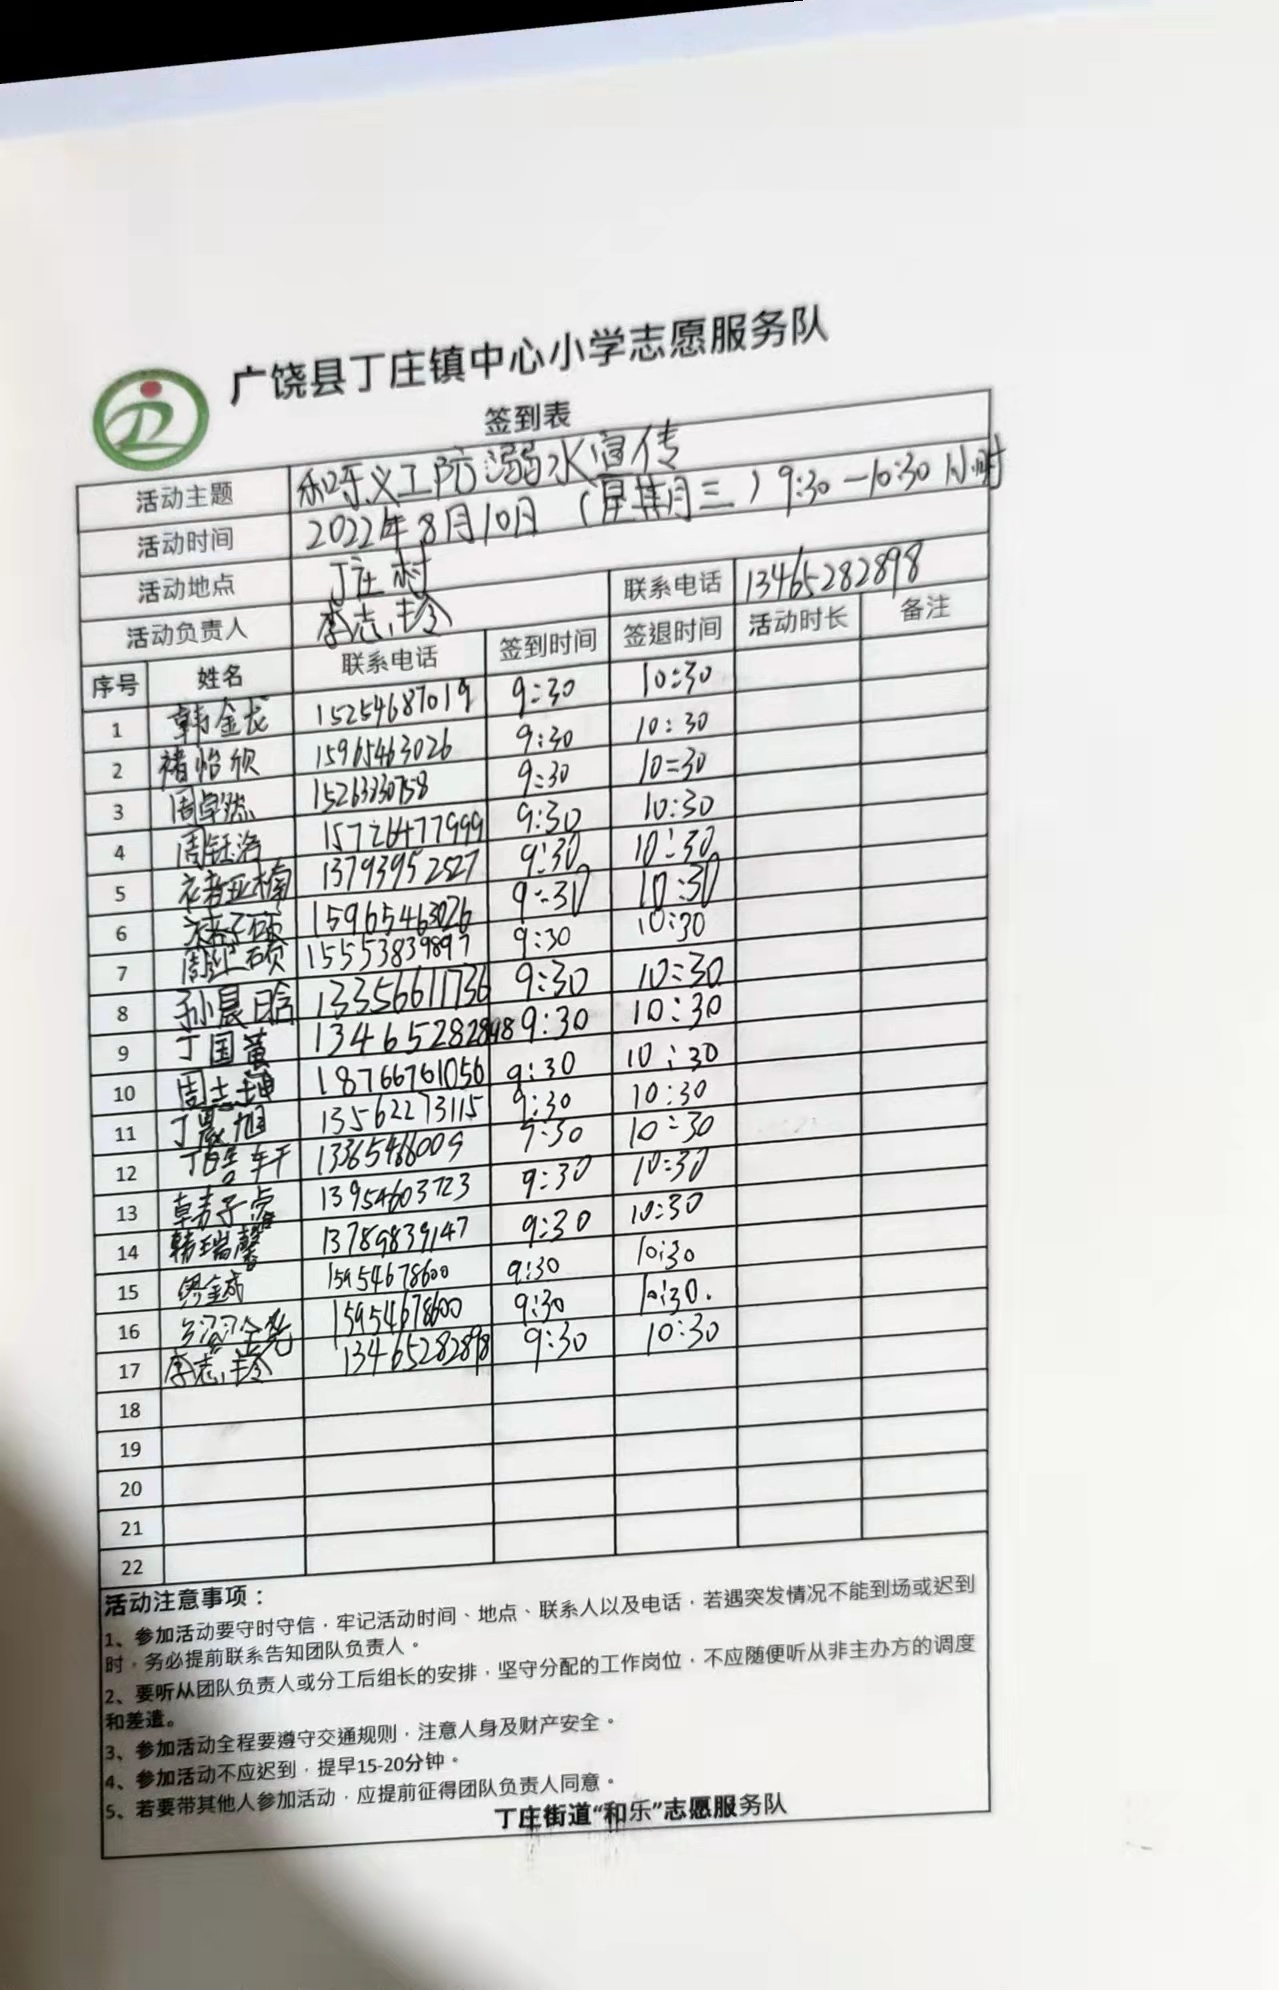 广饶县丁庄镇中心小学志愿服务队
签到表
活动主题 和乐义工防溺水宣传
活动时间 2022年8月10日（星期三）9:30—10:30 1小时
活动地点 丁庄村
活动负责人 李志玲 联系电话 13465282898
序号 姓名 联系电话 签到时间 签退时间 活动时长 备注
1 韩金龙 15254687019 9:30 10:30
2 褚怡欣 15965463026 9:30 10:30
3 周卓然 9:30 10:30
4 周钰洛 15726477999 9:30 10:30
5 13793952527 9:30 10:30
6 15965463026 9:30 10:30
7 15553839897 9:30 10:30
8 孙晨晗 13356611736 9:30 10:30
9 丁国 13465282898 9:30 10:30
10 周志坤 18766761056 9:30 10:30
11 丁晟旭 13562273115 9:30 10:30
12 9:30 10:30
13 韩子睿 13954603723 9:30 10:30
14 韩瑞馨 13789839147 9:30 10:30
15 15954678600 9:30 10:30
16 15954678600 9:30 10:30.
17 李志玲 13465282898 9:30 10:30
18
19
20
21
22
活动注意事项：
1、参加活动要守时守信，牢记活动时间、地点、联系人以及电话，若遇突发情况不能到场或迟到
时，务必提前联系告知团队负责人。
2、要听从团队负责人或分工后组长的安排，坚守分配的工作岗位，不应随便听从非主办方的调度
和差遣。
3、参加活动全程要遵守交通规则，注意人身及财产安全。
4、参加活动不应迟到，提早15-20分钟。
5、若要带其他人参加活动，应提前征得团队负责人同意。
丁庄街道“和乐”志愿服务队